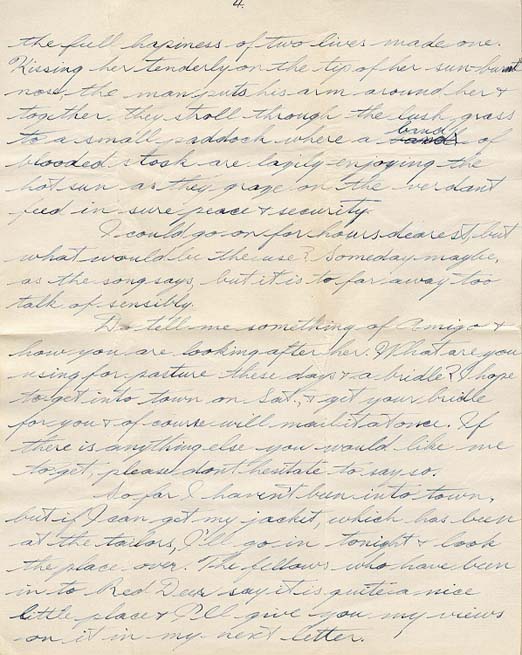 4.
the full hapiness of two lives made one.
Kissing her tenderly on the tip of her sun-burnt
nose, the man puts his arm around her &
together they stroll through the lush grass
to a small paddock where a band of
blooded stosk are lazily enjoying the
hot sun as they graze on the verdant
feed in sure peace & security.
I could go on for hours dearest, but
what would be the use? Someday maybe,
as the song says, but it is to far away too
talk of sensibly.
Do tell me something of Amigo &
how you are looking after her. What are you
using for pasture these days & a bridle? I hope
to get into town on Sat., & get your bridle
for you & of course will mail it at once. If
there is anything else you would like me
to get, please don't hesitate to say so.
So far I haven't been into town,
but if I can get my jacket, which has been
at the tailors, I'll go in tonight & look
the place over. The fellows who have been
in to Red Deer say it is quite a nice
little place & I'll give you my views
on it in my next letter.